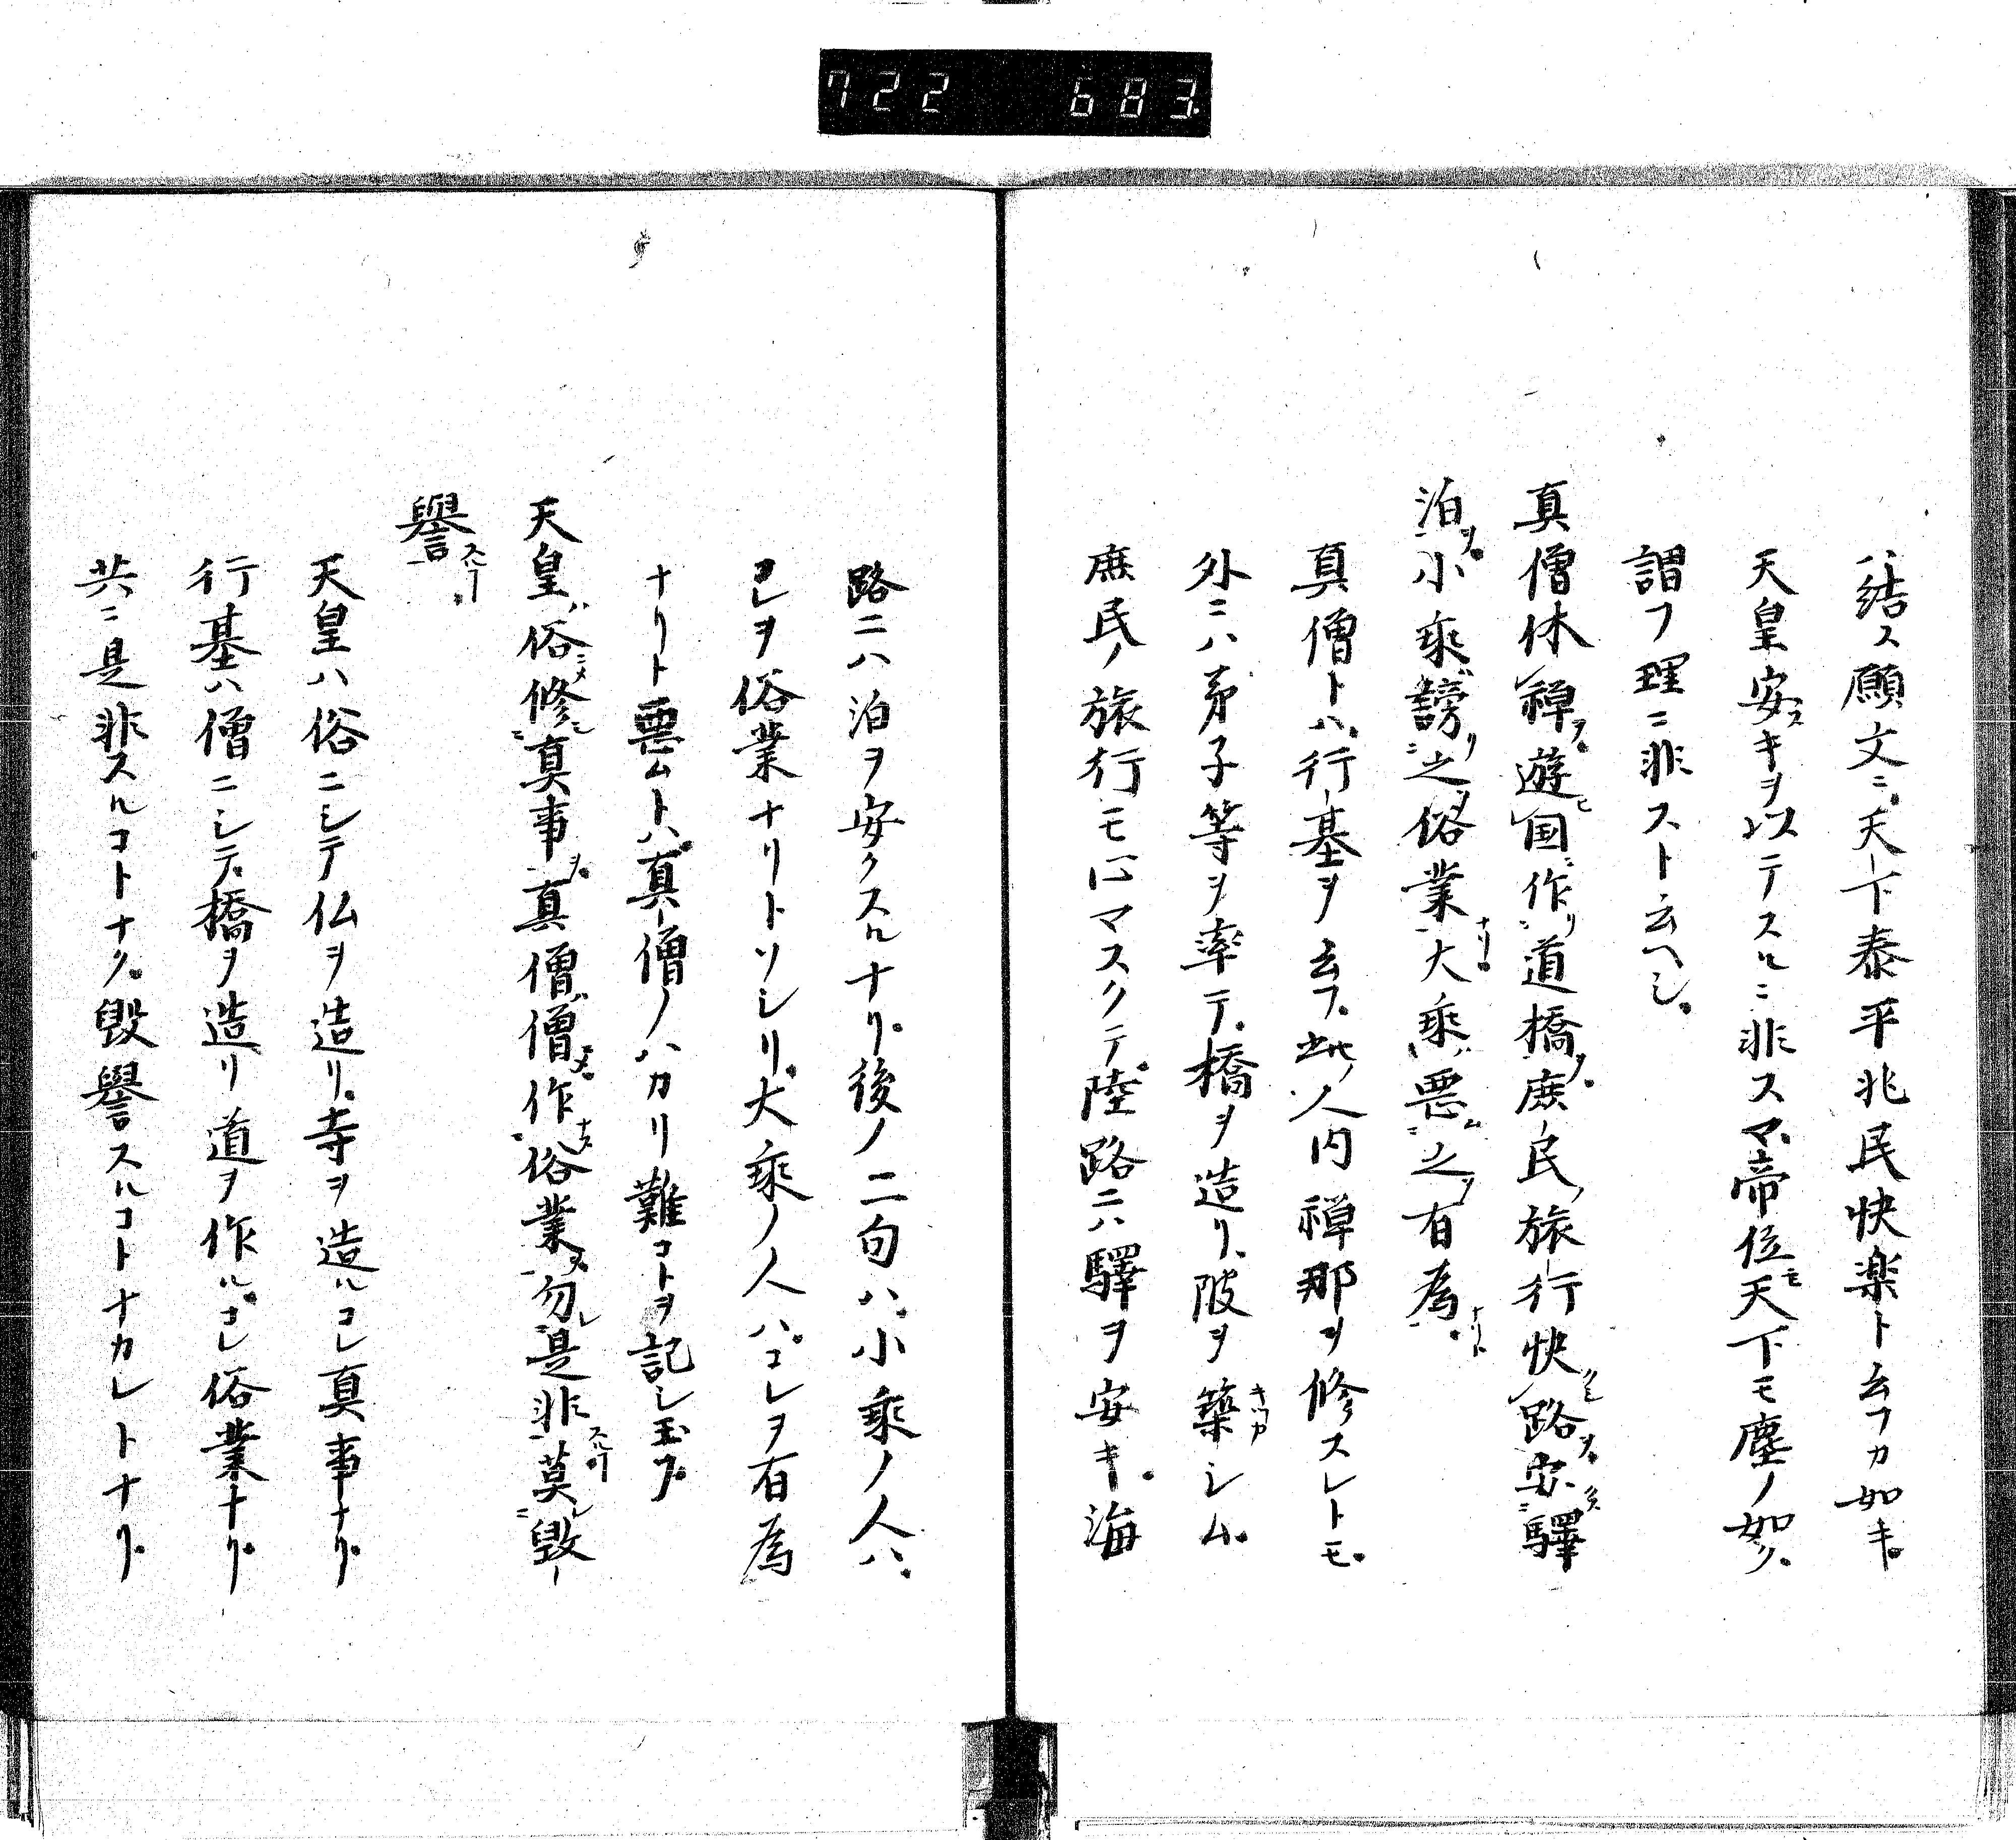 722 683.
結ス願文ニ天下泰平兆民快楽ト云フカ如キ
天皇安キヲ以テスルニ非スマ帝位モ天下モ塵ノ如ク
謂フ理ニ非ストモ云ヘシ
真僧休禅ヲ遊ヒ国ニ作リ道橋ヲ庶民ノ旅行快クシ路ヲ安ス驛
泊ヲ小乘ハ謗リ之ヲ俗業ナリ大乘ハ悪ム之ヲ有為ナリト
真僧トハ行基ヲ云フ此ノ人内禅那ヲ修スレトモ
外ニハ弟子等ヲ率テ橋ヲ造リ陂ヲ築キツカシム
庶民ノ旅行モ心マスクテ陸路ニハ驛ヲ安キ海
路ニハ泊ヲ安クスルナリ後ノ二句ハ小乘ノ人ハ
コレヲ俗業ナリトソシリ大乘ノ人ハコレヲ有為
ナリト悪ムトハ真僧ノハカリ難コトヲ記シ玉フ
天皇ハ俗ニメ修シ真事ヲ真僧ハ僧ニメ作ナス俗業ヲ勿レ是非スルコト莫レ毀
譽スルコト
天皇ハ俗ニシテ仏ヲ造リ寺ヲ造ルコレ真事ナリ
行基ハ僧ニシテ橋ヲ造リ道ヲ作ルコレ俗業ナリ
共ニ是非スルコトナク毀譽スルコトナカレトナリ